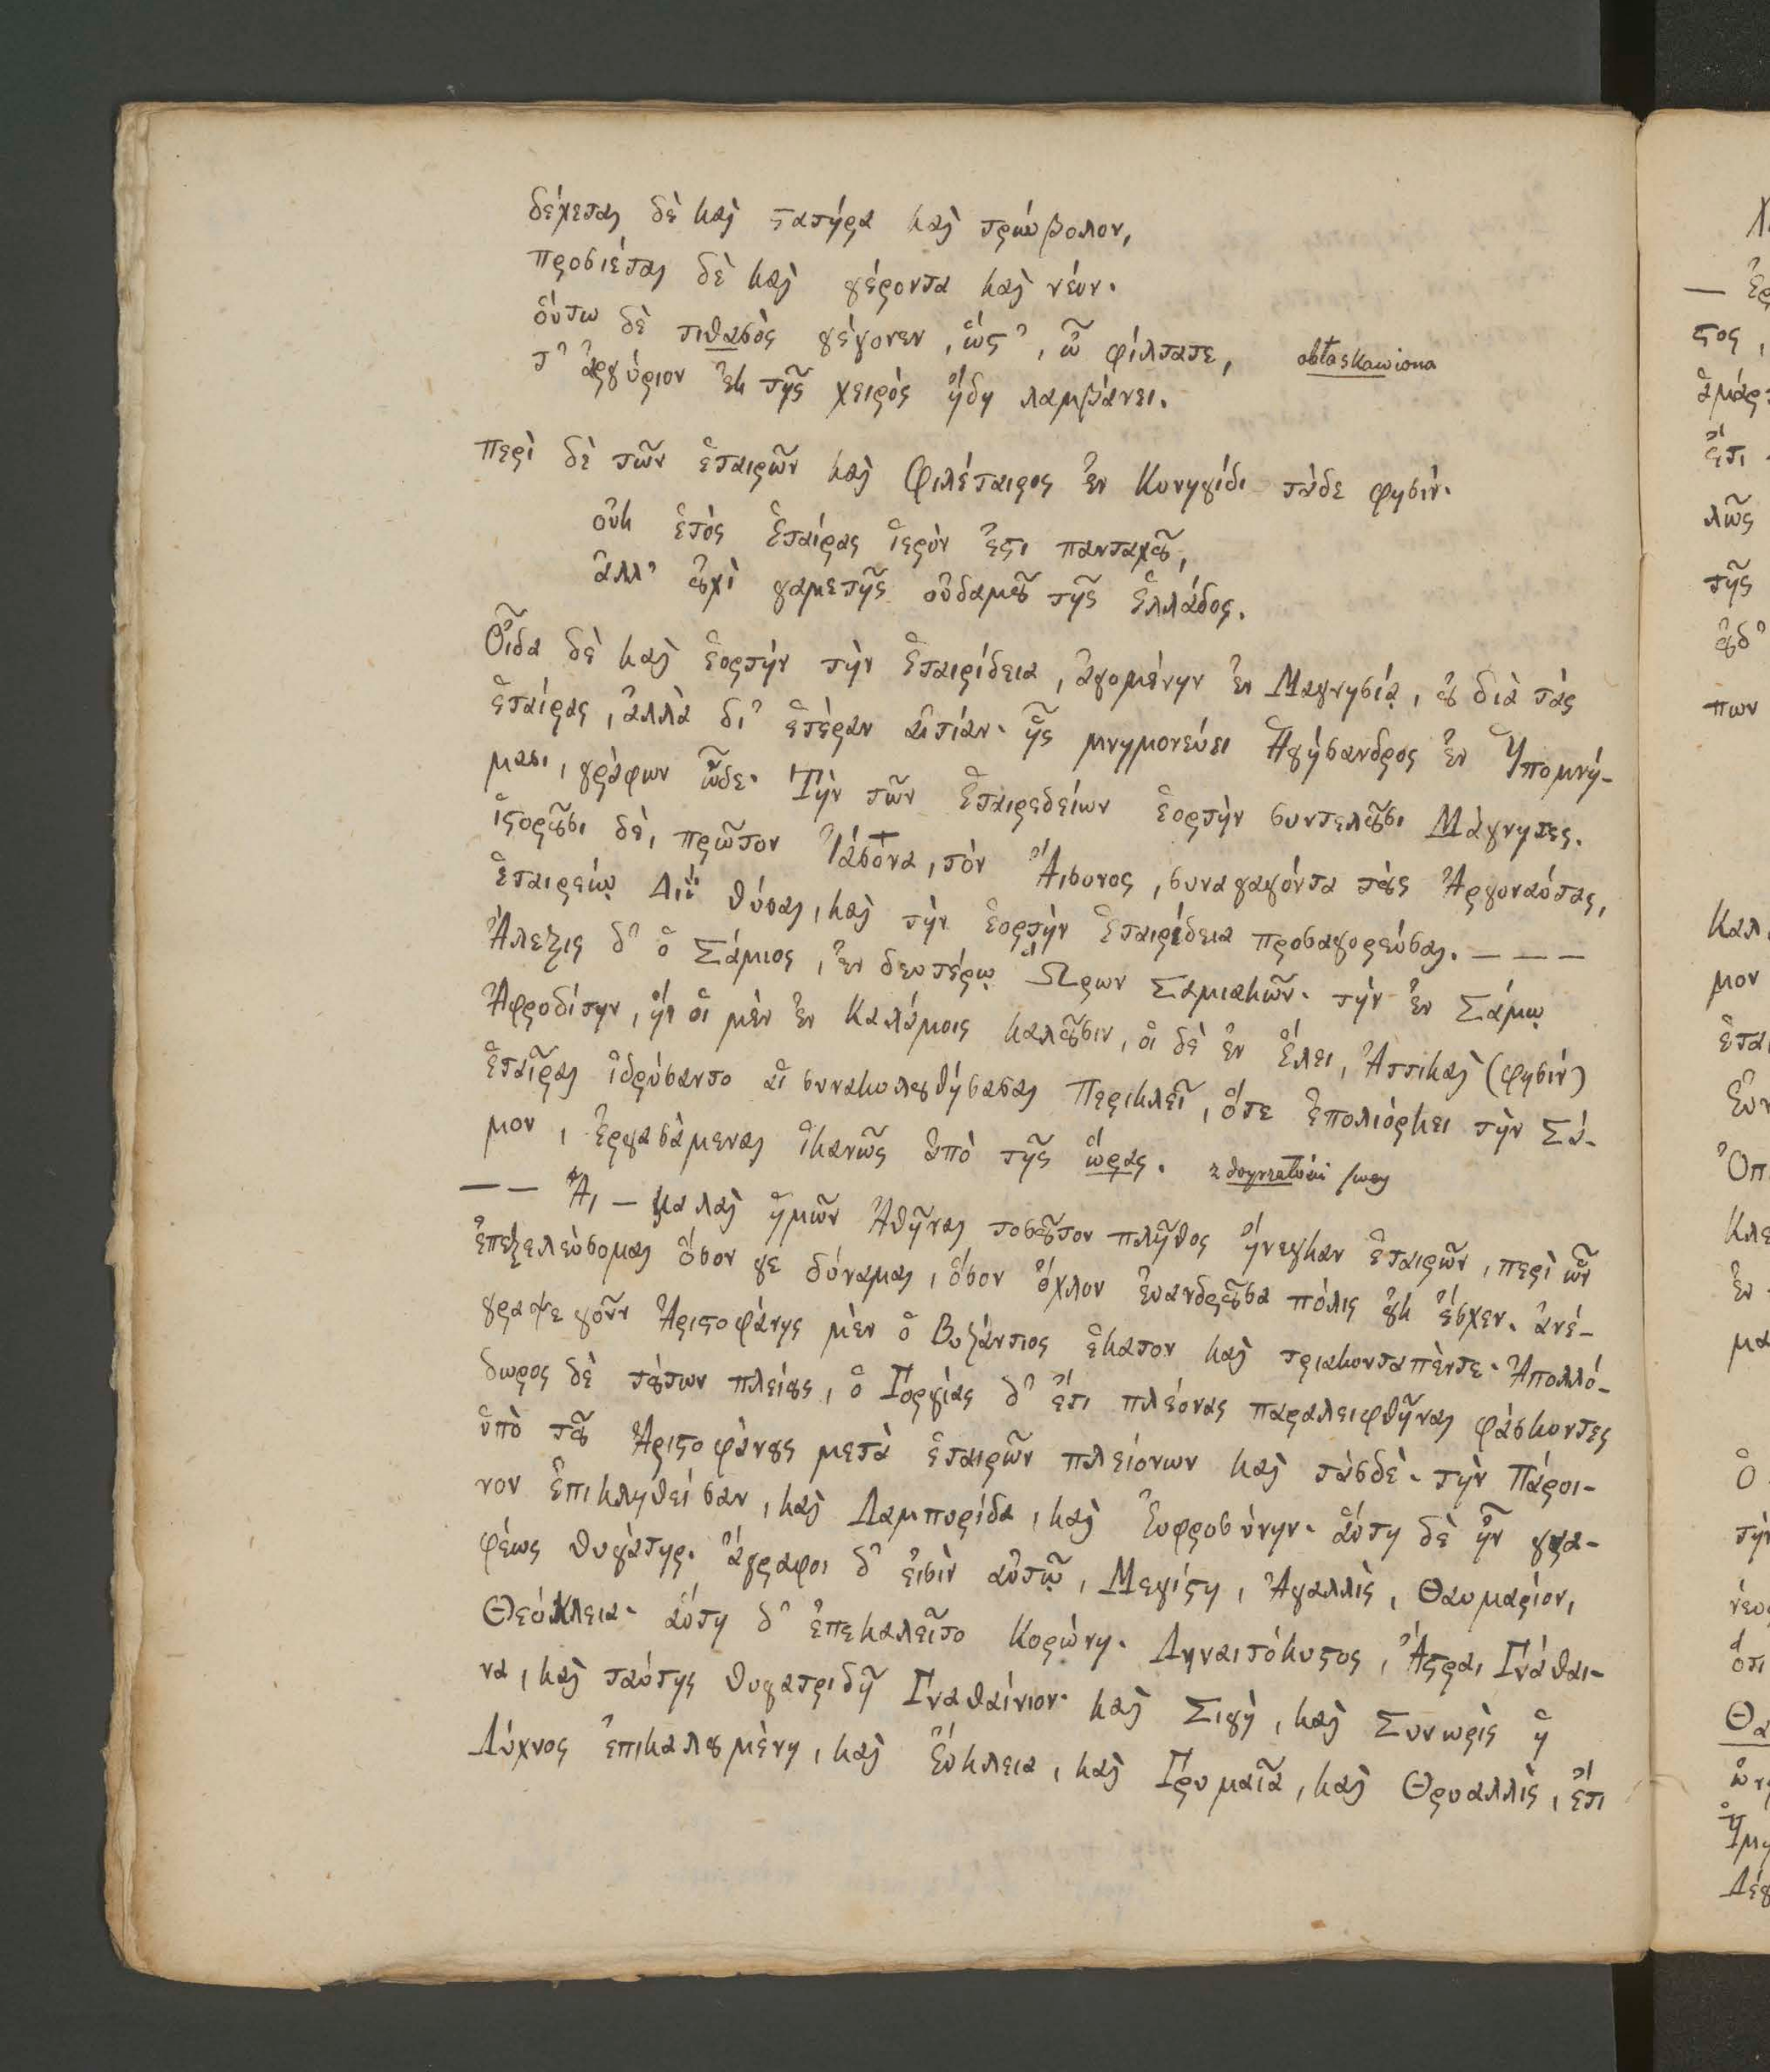 δέχεται δὲ καὶ στατῆρα καὶ τριώβολον,
προσίεται δὲ καὶ γέροντα καὶ νέον·
οὕτω δὲ τιθασὸς γέγονεν, ὥστ᾽, ὦ φίλτατε, obłaskawiona
τ᾽ ἀργύριον ἐκ τῆς χειρὸς ἤδη λαμβάνει.
περὶ δὲ τῶν ἑταιρῶν καὶ Φιλέταιρος ἐν Κυνηγίδι τάδε φησίν·
οὐκ ἐτὸς ἑταίρας ἱερόν ἐστι πανταχοῦ,
ἀλλ᾽ οὐχὶ γαμετῆς οὐδαμοῦ τῆς Ἑλλάδος.
Οἶδα δὲ καὶ ἑορτὴν τὴν Ἑταιρίδεια, ἀγομένην ἐν Μαγνησίᾳ, οὐ διὰ τάς
ἑταίρας, ἀλλὰ δι᾽ ἑτέραν αἰτίαν· ἧς μνημονεύει Ἡγήσανδρος ἐν Ὑπομνή-
μασι, γράφων ὧδε· Τὴν τῶν Ἑταιρεδείων ἑορτὴν συντελοῦσι Μάγνητες.
ἱστοροῦσι δὲ, πρῶτον Ἰάσονα, τὸν Αἴσονος, συναγαγόντα τοὺς Ἀργοναύτας,
ἑταιρείῳ Διῒ θύσαι, καὶ τὴν ἑορτὴν Ἑταιρίδεια προσαγορεῦσαι. — — —
Ἄλεξις δ᾽ ὁ Σάμιος, ἐν δευτέρῳ Ὥρων Σαμιακῶν· τὴν ἐν Σάμῳ
Ἀφροδίτην, ἣν οἱ μὲν ἐν Καλάμοις καλοῦσιν, οἱ δὲ ἐν Ἕλει, Ἀττικαὶ (φησίν)
ἑταῖραι ἱδρύσαντο αἱ συνακολουθήσασαι Περικλεῖ, ὅτε ἐπολιόρκει τὴν Σά-
μον, ἐργασάμεναι ἱκανῶς ἀπὸ τῆς ὥρας.
— — Αἱ — καλαὶ ἡμῶν Ἀθῆναι τοσοῦτον πλῆθος ἤνεγκαν ἑταιρῶν, περὶ ὧν
ἐπεξελεύσομαι ὅσον γε δύναμαι, ὅσον ὄχλον εὐανδροῦσα πόλις οὐκ ἔσχεν. ἀνέ-
γραψε γοῦν Ἀριστοφάνης μὲν ὁ Βυζάντιος ἑκατον καὶ τριακονταπέντε· Ἀπολλό-
δωρος δὲ τούτων πλείους, ὁ Γοργίας δ᾽ ἔτι πλέονας παραλειφθῆναι φάσκοντες
ὑπὸ τοῦ Ἀριστοφάνους μετὰ ἑταιρῶν πλειόνων καὶ τάσδε· τὴν Πάροι-
νον ἐπικληθείσαν, καὶ Λαμπυρίδα, καὶ Εὐφροσύνην· αὕτη δὲ ἦν γνα-
φέως θυγάτηρ. ἄγραφοι δ᾽ εἰσὶν αὐτῷ, Μεγίστη, Ἀγαλλὶς, Θαυμαρίον,
Θεόκλεια· αὕτη δ᾽ ἐπεκαλεῖτο Κορώνη. Ληναιτόκυστος, Ἄστρα, Γνάθαι-
να, καὶ ταύτης θυγατριδῆ Γναθαίνιον· καὶ Σιγὴ, καὶ Συνωρὶς ἡ
Λύχνος ἐπικαλουμένη, καὶ Εὔκλεια, καὶ Γρυμαῖα, καὶ Θρυαλλὶς, ἔτι